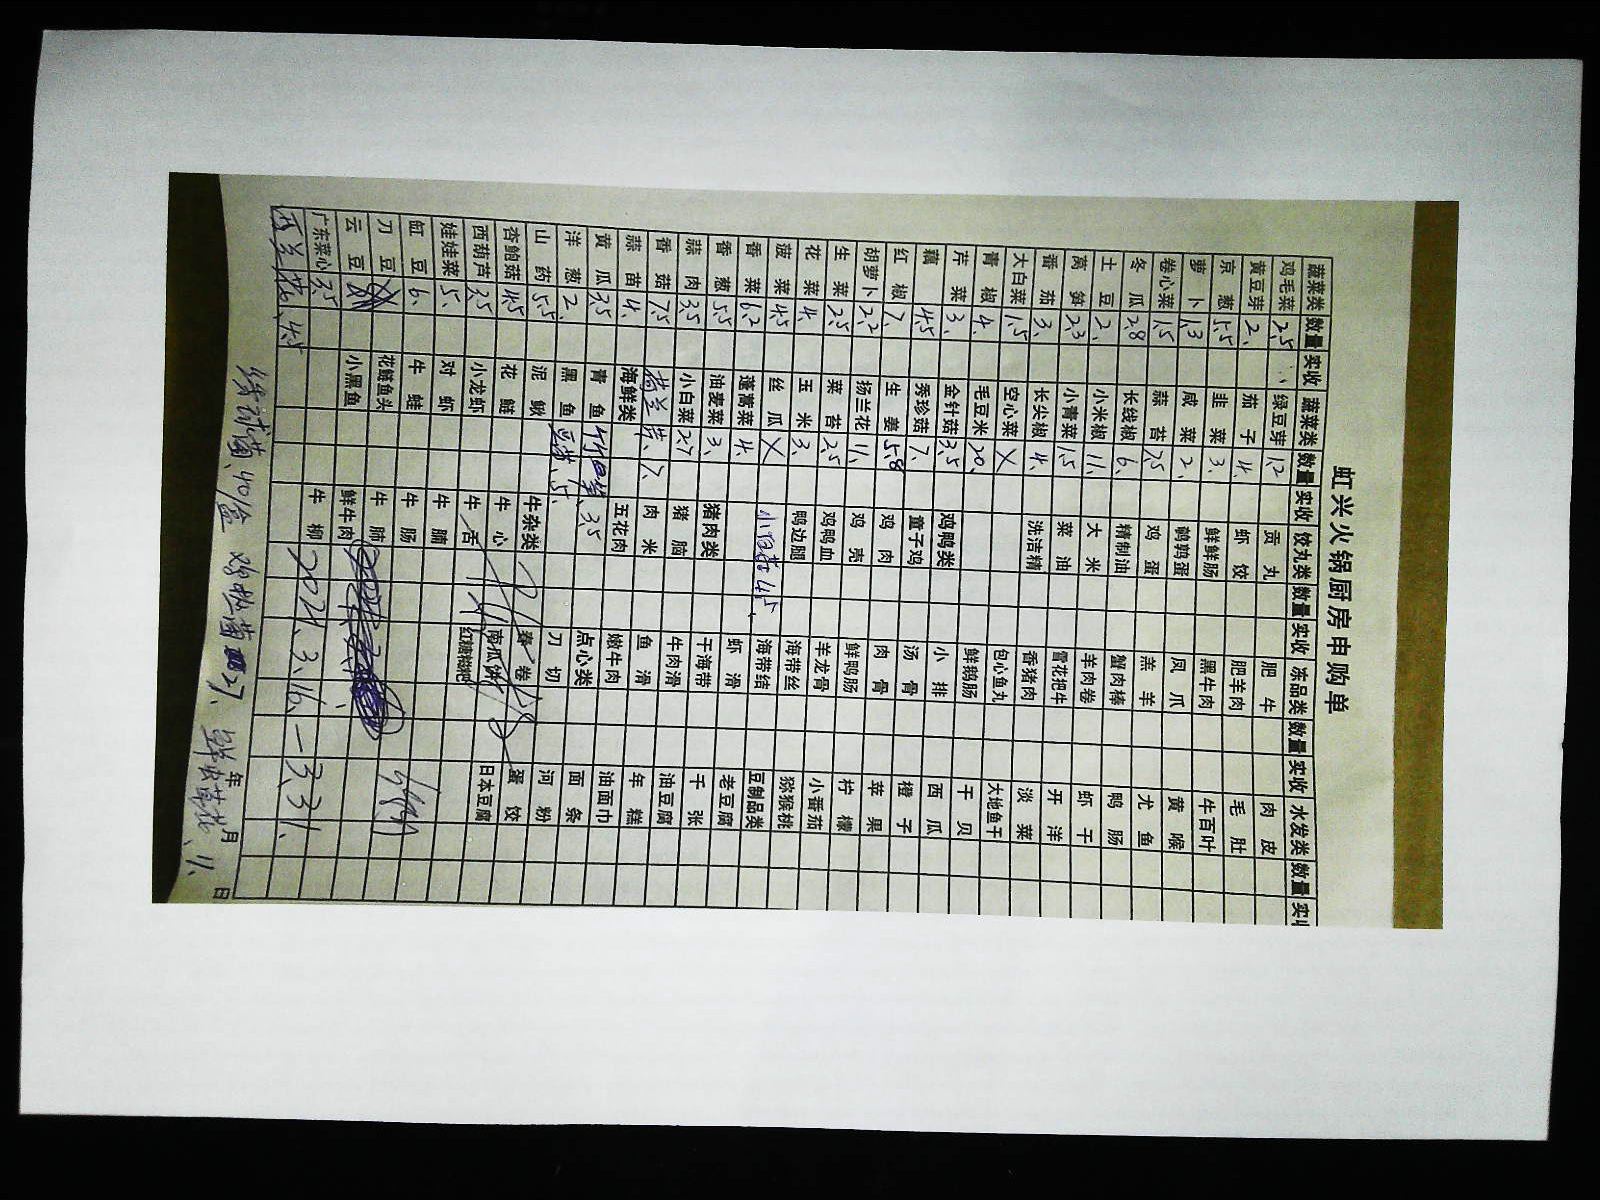 虹兴火锅厨房申购单
蔬菜类 数量 实收 蔬菜类 数量 实收 饺丸类 数量 实收 冻品类 数量 实收 水发类 数量 实收
鸡毛菜 2.5 绿豆芽 1.2 贡丸 肥牛 肉皮
黄豆芽 2. 茄子 4. 虾饺 肥羊肉 毛肚
京葱 5.5 韭菜 3. 鲜鲜肠 黑牛肉 牛百叶
萝卜 1.3 咸菜 2. 鹌鹑蛋 凤爪 黄喉
卷心菜 1.5 蒜苔 7.5 鸡蛋 羔羊 尤鱼
冬瓜 2.8 长线椒 6. 精制油 蟹肉棒 鸭肠
土豆 2. 小米椒 11. 大米 羊肉卷 虾干
莴笋 2.3 小青菜 1.5 菜油 雪花把牛 开洋
番茄 3. 长尖椒 4. 洗洁精 香猪肉 淡菜
大白菜 1.5 空心菜 X 包心鱼丸 大地鱼干
青椒 4. 毛豆米 20. 鲜鹅肠 干贝
芹菜 3. 金针菇 3.5 鸡鸭类 小排 西瓜
藕 4.5 秀珍菇 7. 童子鸡 汤骨 橙子
红椒 7. 生姜 5.8 鸡肉 肉骨 苹果
胡萝卜 2.2 扬兰花 11. 鸡壳 鲜鸭肠 柠檬
生菜 2.5 菜苔 2.5 鸡鸭血 羊龙骨 小番茄
花菜 4. 玉米 3. 鸭边腿 海带丝 猕猴桃
菠菜 4.5 丝瓜 X 4.5 海带结 豆制品类
香菜 6.2 蓬蒿菜 4. 虾滑 老豆腐
香葱 5.5 油麦菜 3. 猪肉类 干海带 千张
蒜肉 3.5 小白菜 2.7 猪脑 牛肉滑 油豆腐
香菇 7.5 7. 肉米 鱼滑 年糕
蒜苗 4. 海鲜类 五花肉 嫩牛肉 油面巾
黄瓜 3.5 青鱼 3.5 点心类 面条
洋葱 2. 黑鱼 豆苗 5. 刀切 河粉
山药 5.5 泥鳅 牛杂类 春卷 蛋饺
杏鲍菇 4.5 花鲢 牛心 南瓜饼 日本豆腐
西葫芦 3.5 小龙虾 牛舌 红糖糍粑
娃娃菜 5. 对虾 牛腩
缸豆 6. 牛蛙 牛肠
刀豆 花鲢鱼头 牛肺
云豆 小黑鱼 鲜牛肉
广东菜心 3.5 牛柳 2021.3.16.—3.31.
西兰花 4.5
年 月 日